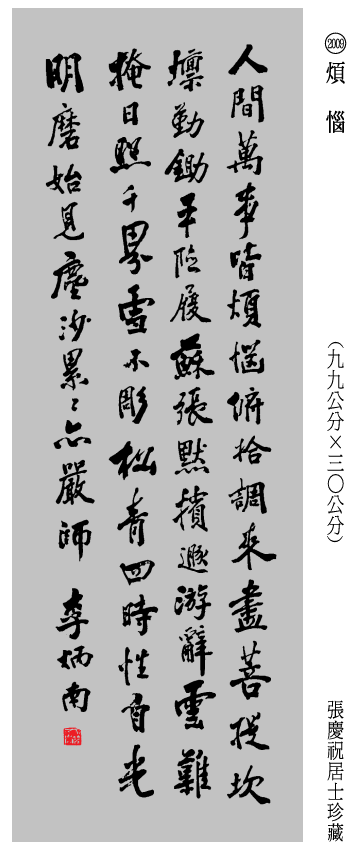 2009 煩惱
（九九公分×三〇公分）
張慶祝居士珍藏
人間萬事皆煩惱俯拾調來盡菩提坎
壈勤鋤平險履蘇張默擯遯游辭雲難
掩日照千界雪不彫松青四時性自光
明磨始見塵沙累〻亦嚴師 李炳南